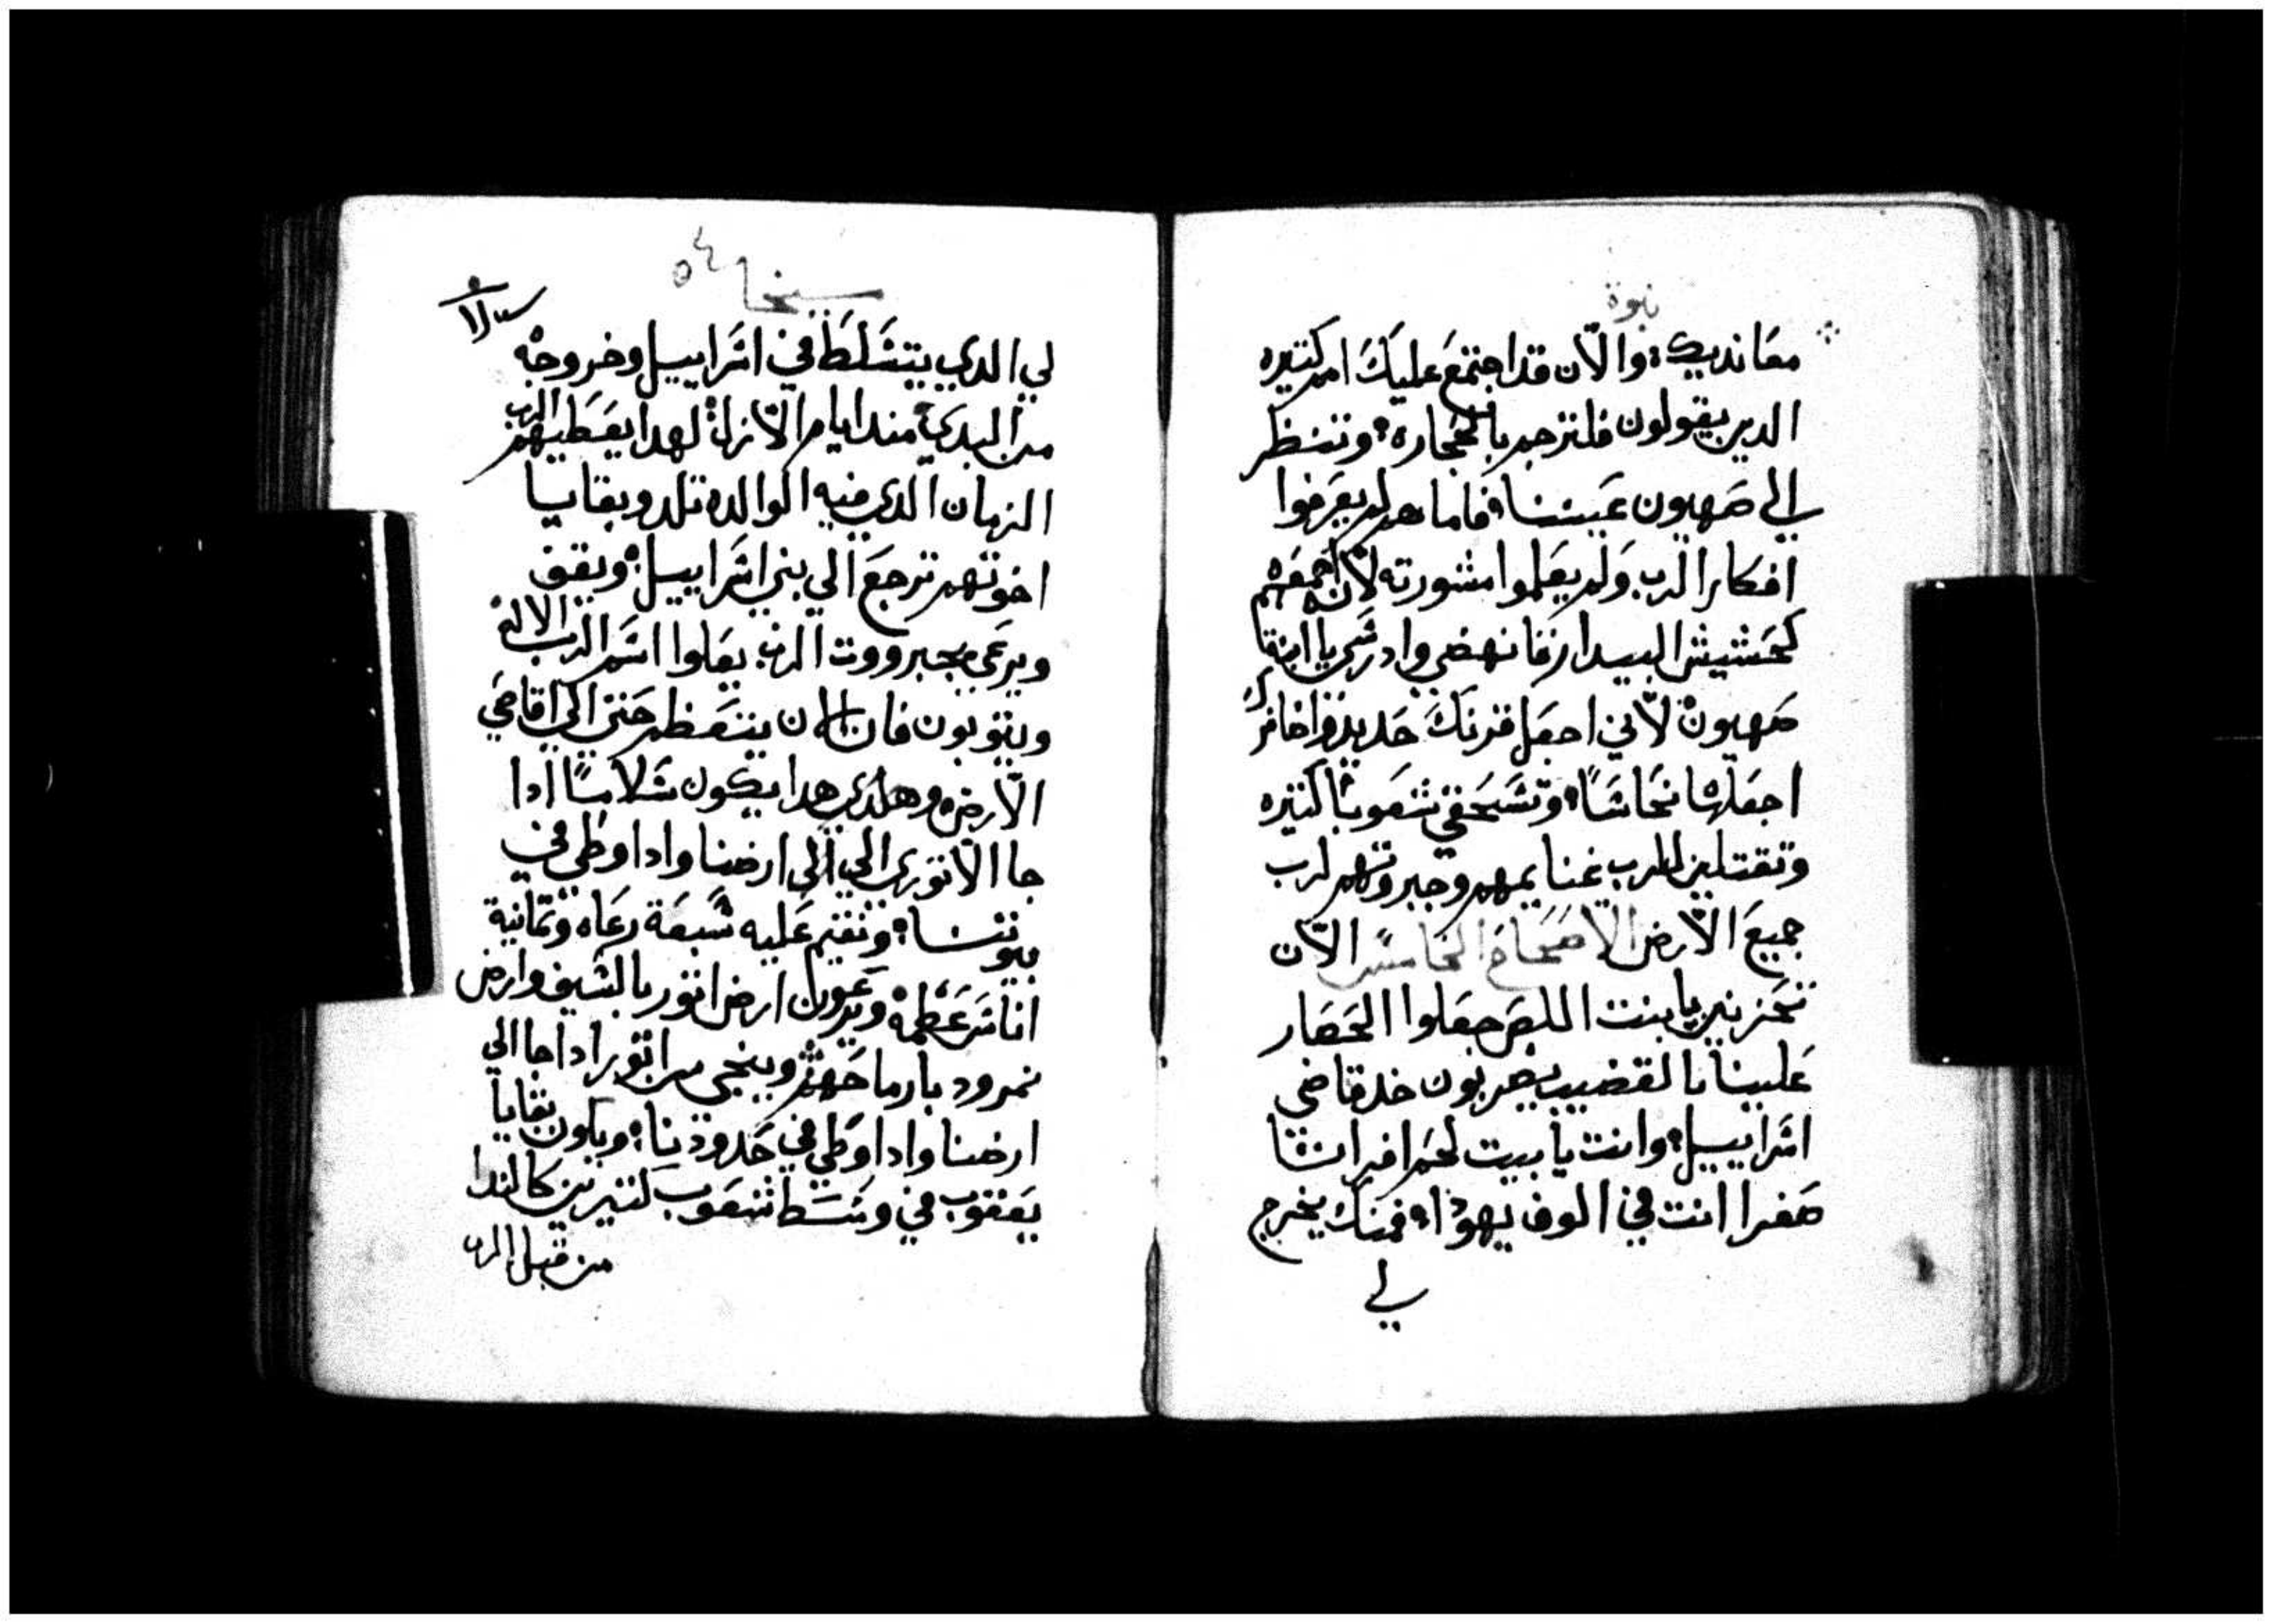 نبوة
معانديك؛ والآن قد اجتمع عليك امم كتيره
الدين يقولون فلترجم بالحجاره؛ وتنظر
الى صهيون عيننا؛ فاما هم لم يعرفوا
افكار الرب ولم يعلموا مشورته لأنه جمعهم
كحشيش البيدار فانهضي وادرسي يا ابنة
صهيون لأني اجعل قرنك حديد واظافرك
اجعلها نحاسًا؛ وتسحقي شعوبًا كتيره
وتقتلين للرب غنايمهم وجبروتهم لرب
جميع الأرض الاصحاح الخامس الآن
تحزنين يا بنت اللص جعلوا الحصار
علينا بالقضيب يضربون خد قاضي
اسراييل؛ وانت يا بيت لحم افراتا
صغيرا انت في الوف يهودا؛ فمنك يخرج
لي
ميخا
٥٤
لي الدي يتسلط في اسراييل وخروجه
من البدي مند ايام الأزل؛ لهدا يعطيهم الرب
الزمان الدي فيه الوالده تلد وبقايا
اخوتهم ترجع الي بني اسراييل؛ ويقف
ويرعي بجبرووت الرب يعلوا اسم الرب الاله
ويتوبون فان الان يتعظم حتي الي اقاصي
الأرض؛ وهدي هدا يكون سلامًا ادا
جا الأتوري الي ارضنا وادا وطي في
بيوتنا؛ ونقيم عليه سبعة رعاه وتمانية
اناس عظمه ويرعون ارض اتور بالسيف وارض
نمرود بارماحهم وينجي من اتور ادا جا الي
ارضنا وادا وطي في حدودنا؛ ويكون بقايا
يعقوب في وسط شعوب كتيرين كالندا
من قبل الرب